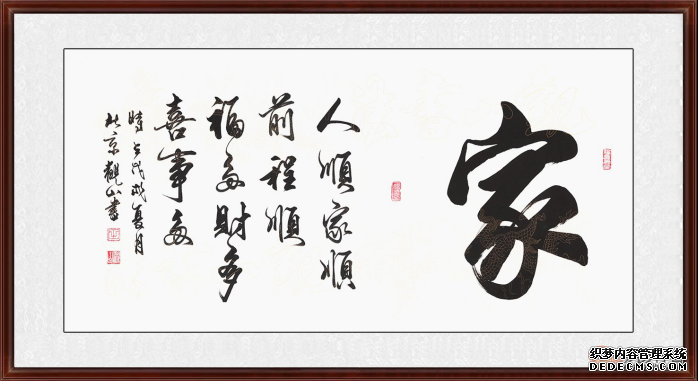 家
人順家順
前程順
福多財多
喜事多
時在戊戌夏月
北京觀山書
织梦内容管理系统
DEDECMS.COM